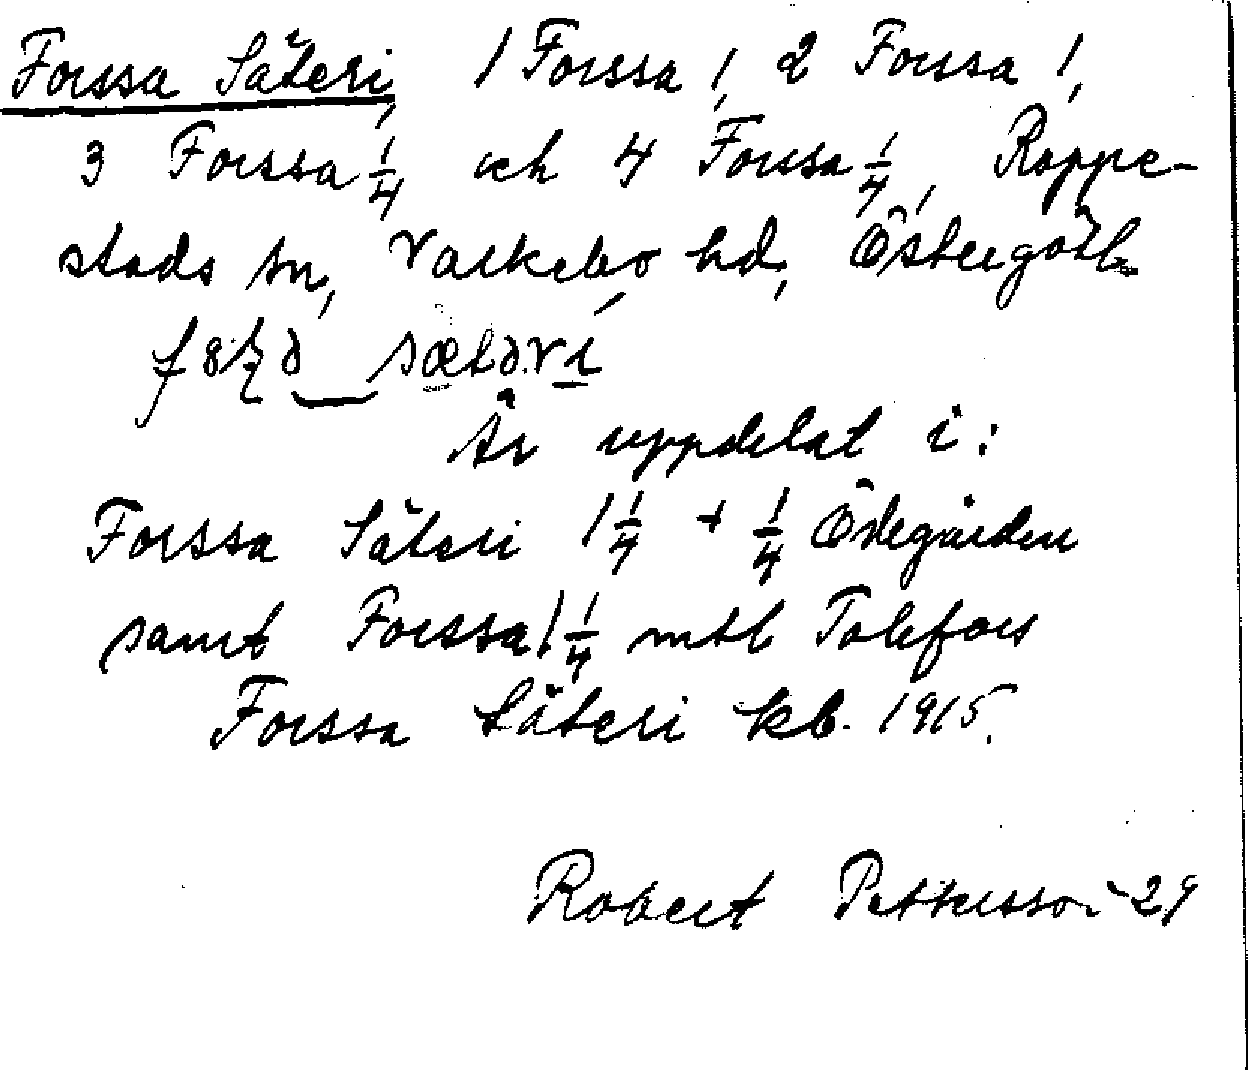 Forssa Säteri, 1 Forssa 1, 2 Forssa 1,
3 Forssa 1/4 och 4 Forssa 1/4, Rappe-
stads sn, Valkebo hd, Östergötl.
sætəri
Är uppdelat i:
Forssa Säteri 1 1/4 + 1/4 Östegården
samt Forssa 1 1/4 mtl Tolefors
Forssa Säteri kb. 1915.
Robert Pettersson -29